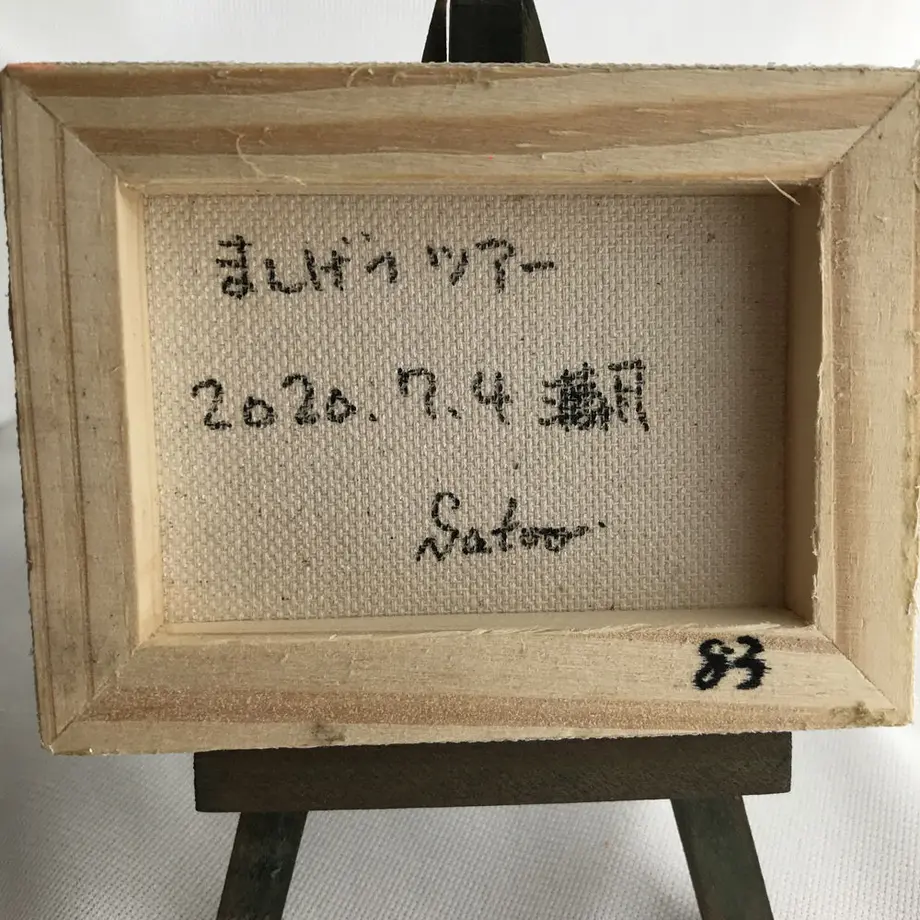 まんげつ ツアー
2020.7.4 満月
Satoo
83